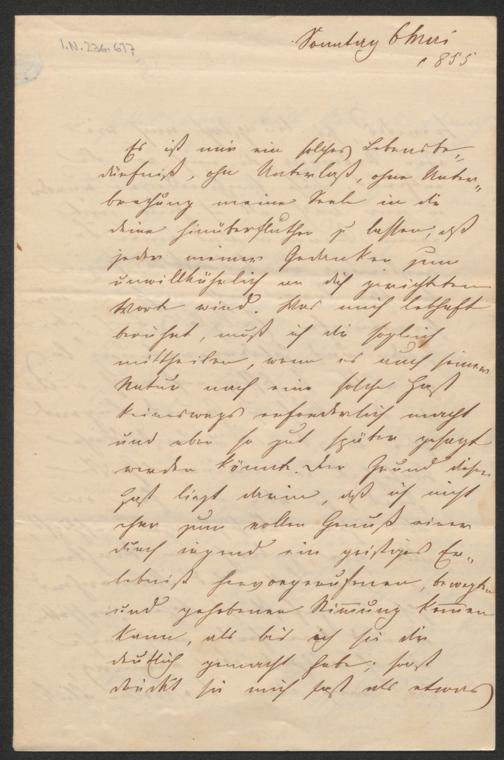 I.N. 236.617
Sonntag 6 Mai
1855
Es ist mir ein solches Lebensbe-
dürfniß, ohn Unterlaß, ohne Unter-
brechung meine Seele in die
deine hinüberfluthen zu lassen, daß
jeder meiner Gedanken zum
unwillkührlich an dich gerichteten
Wort wird. Was mich lebhaft
berührt, muß ich dir sogleich
mittheilen, wenn es auch seiner
Natur nach eine solche Hast
keineswegs erforderlich macht
und eben so gut später gesagt
werden könnte. Der Grund dieser
Hast liegt darin, daß ich nicht
eher zum vollen Genuß einer
durch irgend ein geistiges Er-
lebniß hervorgerufenen, bewegten
und gehobenen Stimmung kommen
kann, als bis ich sie dir
deutlich gemacht habe; sonst
drückt sie mich fast als etwas